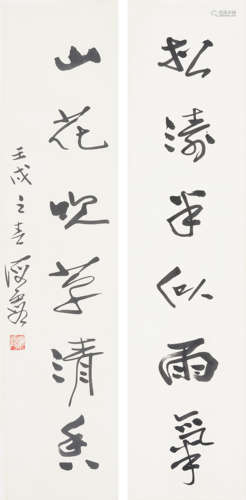 松濤半似雨氣
山花吹草清香
壬戌之春